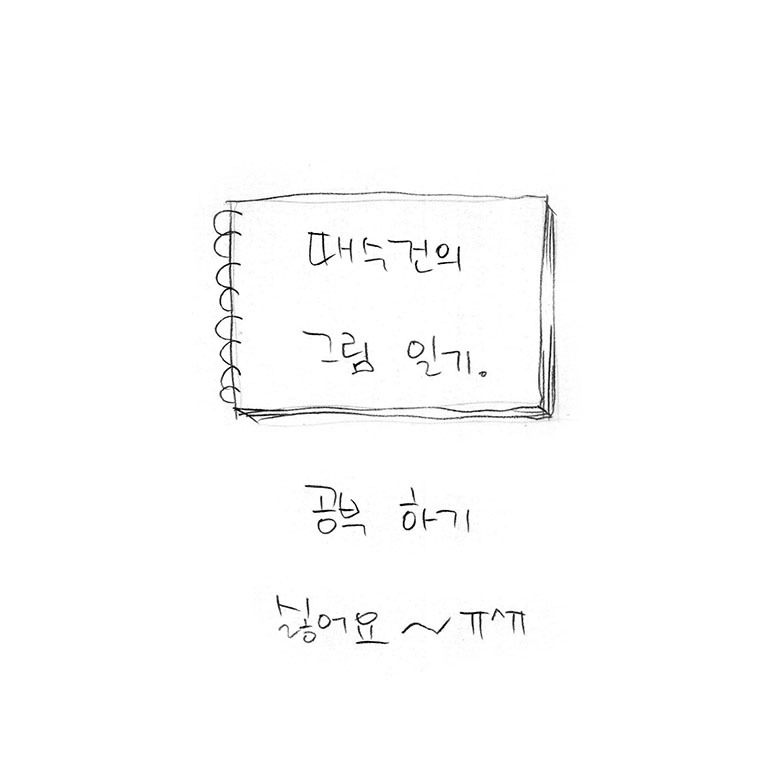 때수건의
그림 일기.
공부 하기
싫어요 ~ ㅠ^ㅠ